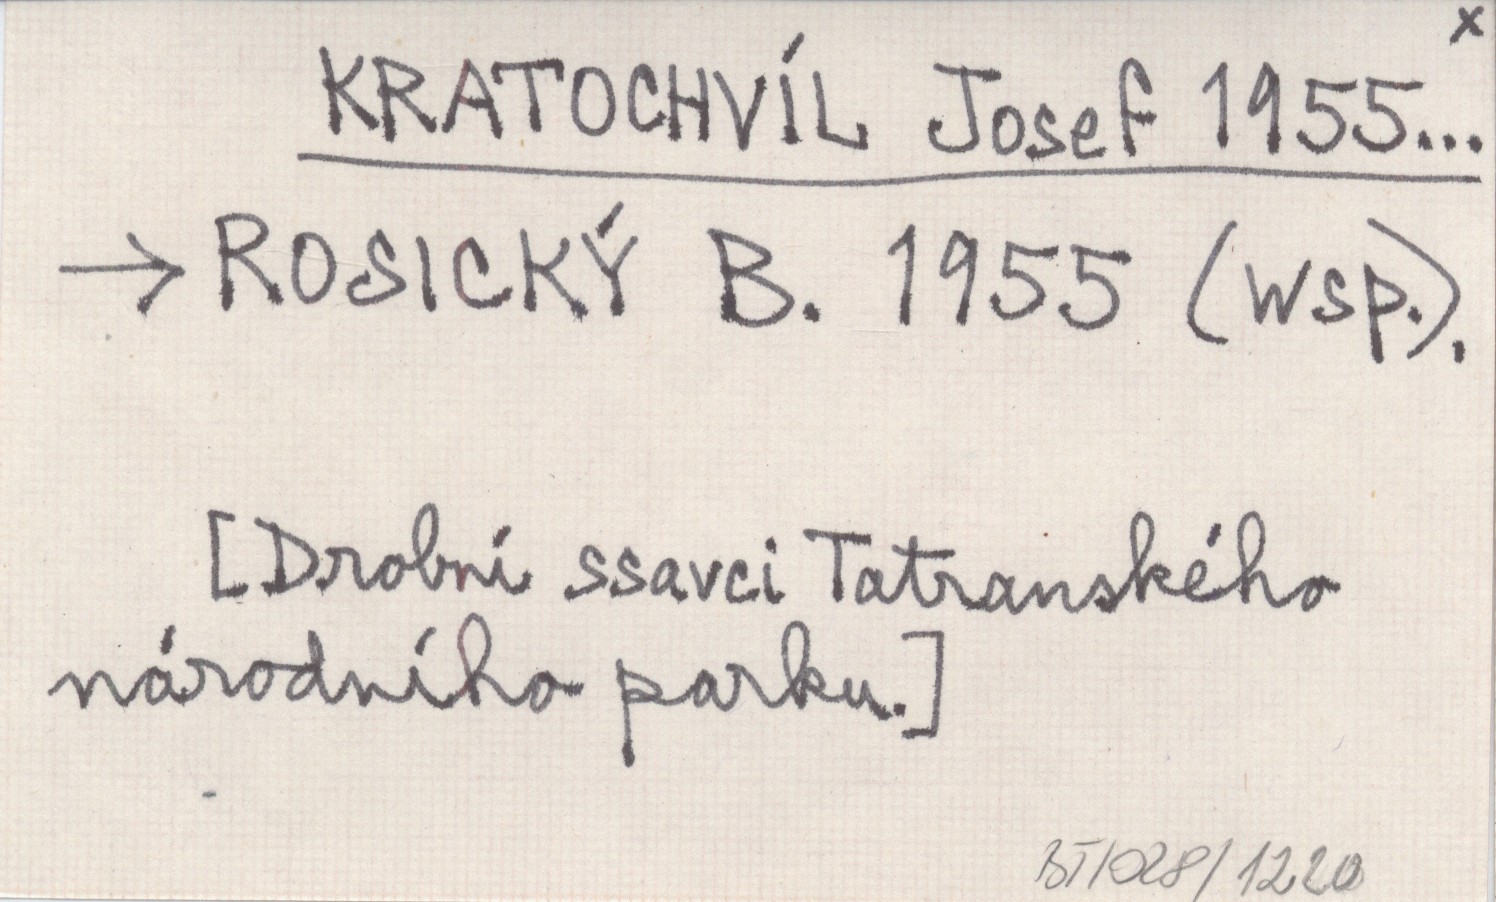 x
KRATOCHVÍL Josef 1955...
→ ROSICKÝ B. 1955 (wsp.).
[Drobní ssavci Tatranského
národního parku.]
BT/028/1220